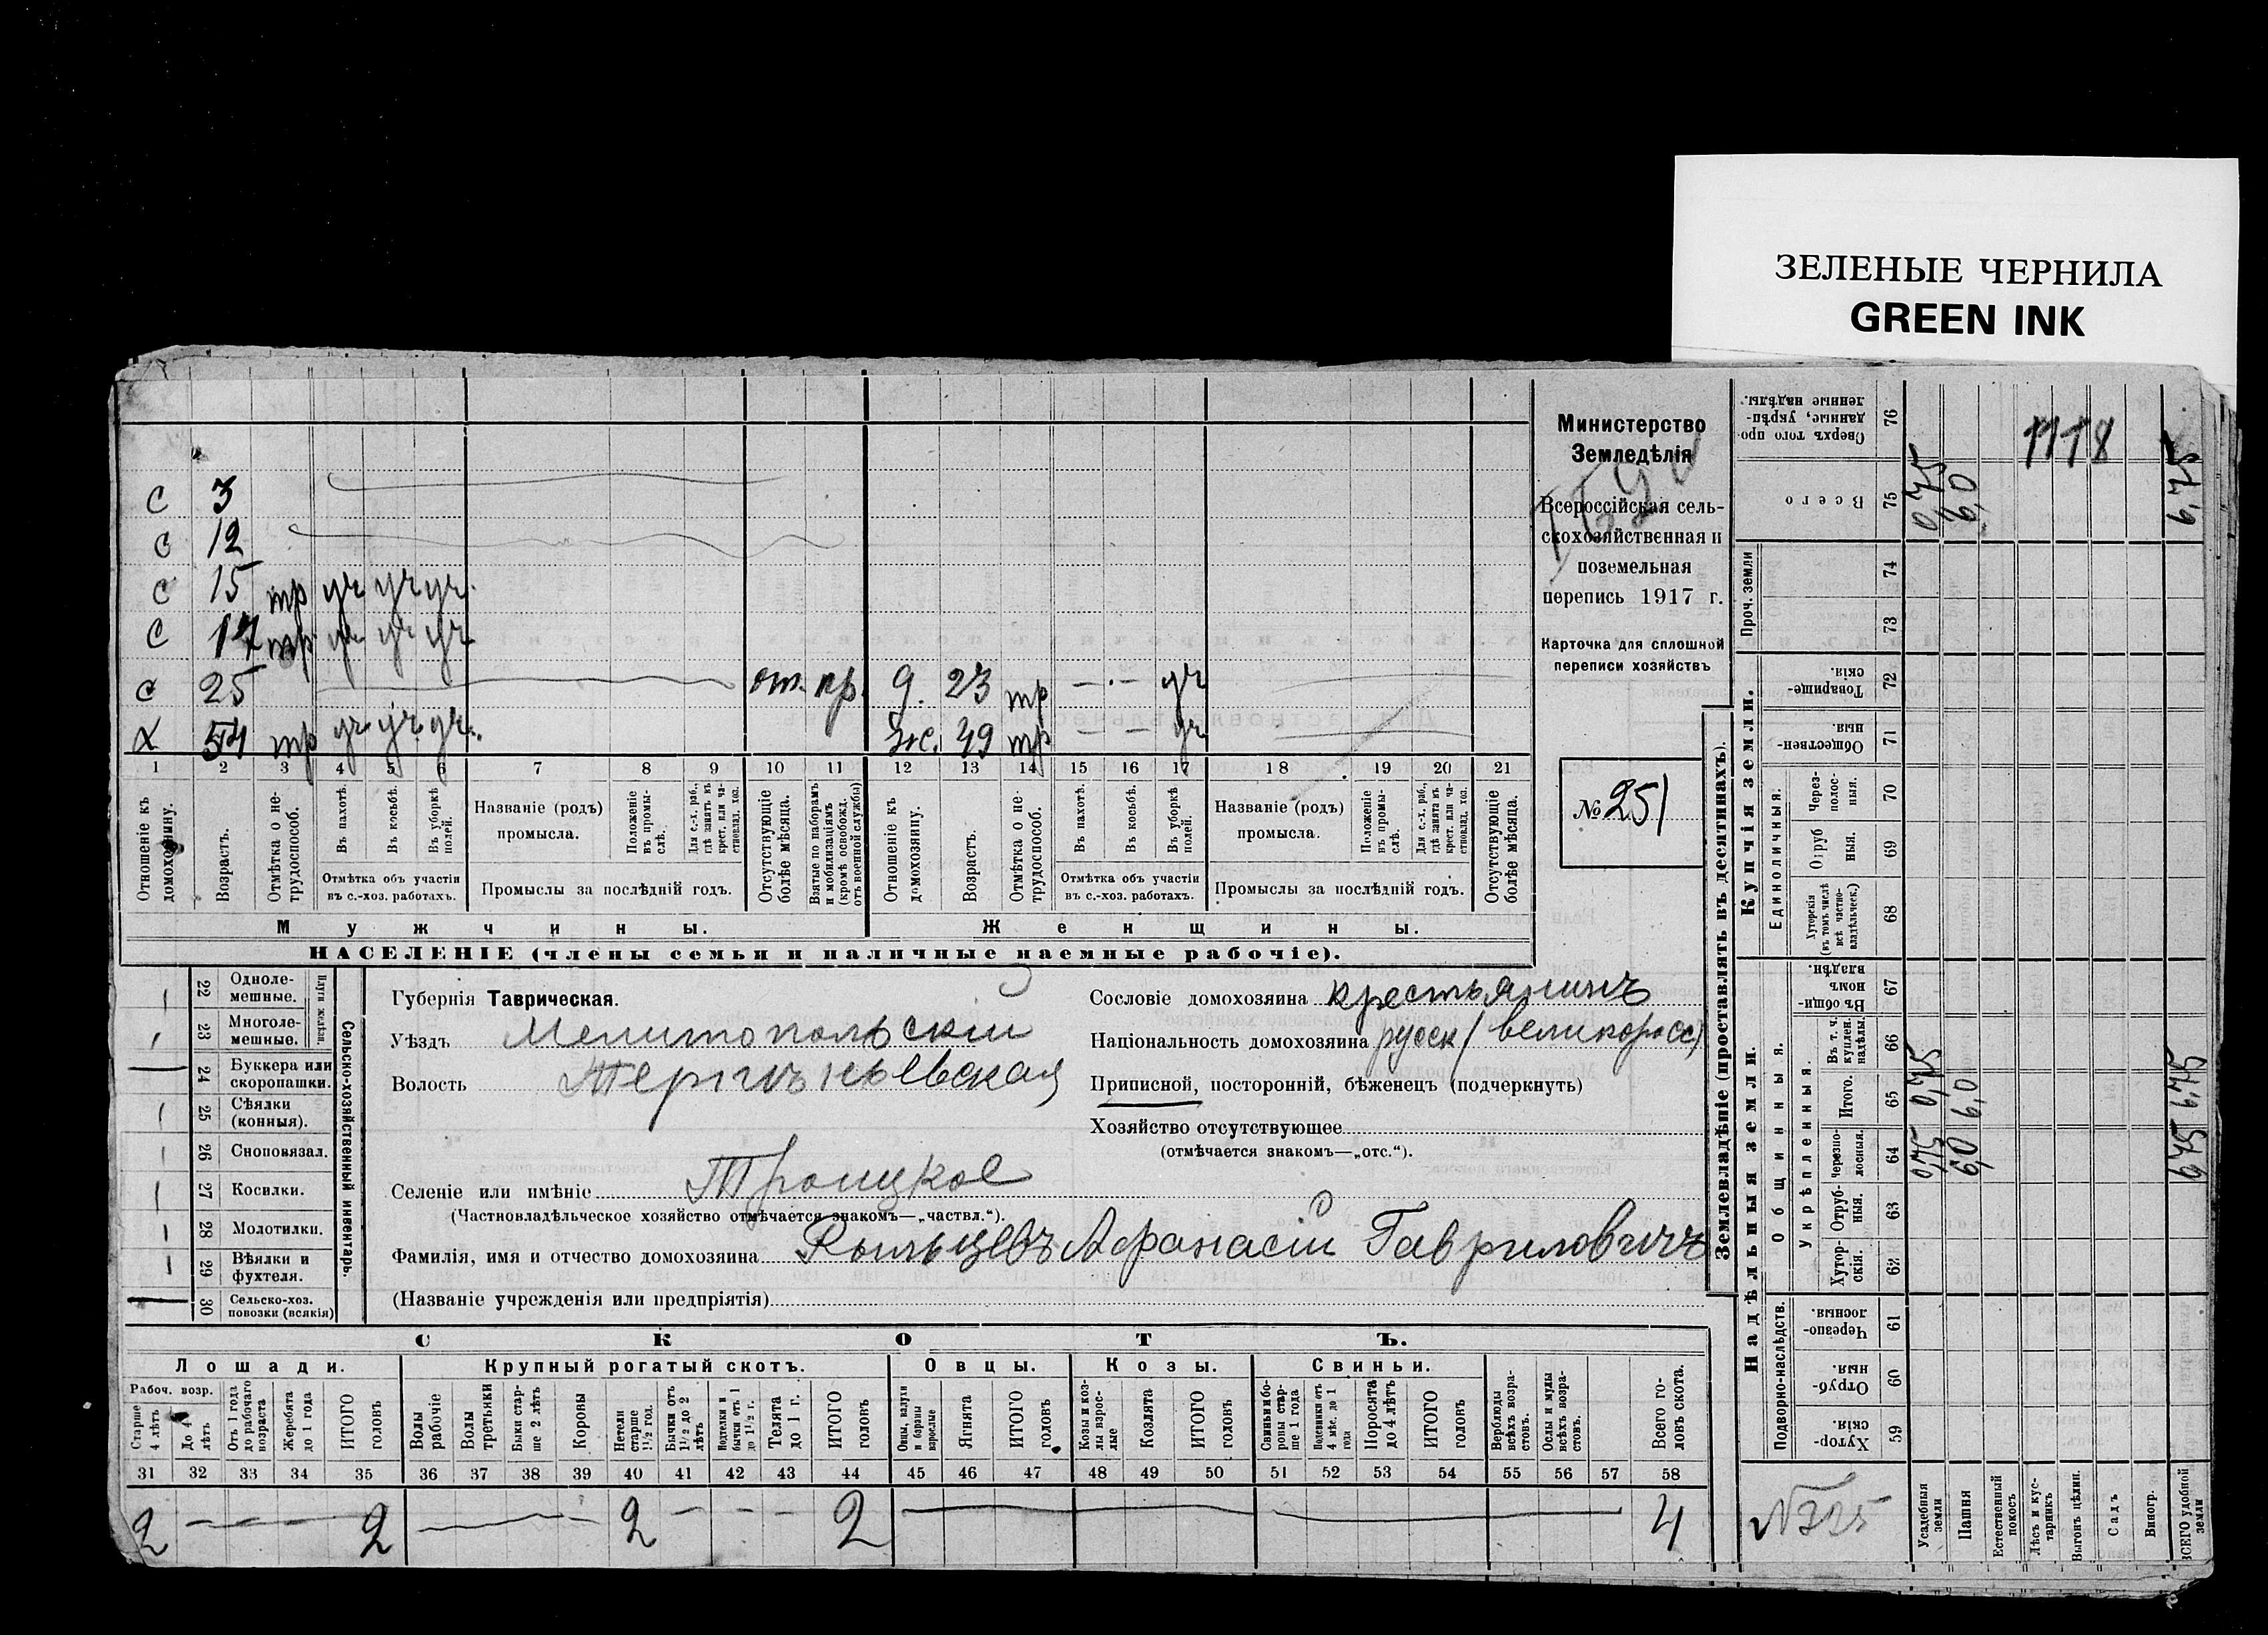 ЗЕЛЕНЫЕ ЧЕРНИЛА
GREEN INK
с 3
с 12
с 15 тр уч уч уч.
с 17 тр. уч уч уч
с 25 от. пр. д. 23 тр — · — уч
х 54 тр уч уч уч. Же. 49 тр — — уч
1 2 3 4 5 6 7 8 9 10 11 12 13 14 15 16 17 18 19 20 21
Отношеніе къ домохозяину.
Возрастъ.
Отмѣтка о нетрудоспособ.
Въ пахотѣ.
Въ косьбѣ.
Въ уборкѣ полей.
Отмѣтка объ участіи
въ с.-хоз. работахъ.
Названіе (родъ)
промысла.
Положеніе въ промыслѣ.
Для с.-х. раб., гдѣ занятъ въ крест. или частновлад. хоз.
Промыслы за послѣдній годъ.
Отсутствующіе болѣе мѣсяца.
Взятые по наборамъ и мобилизаціямъ (кромѣ освобожд. отъ военной службы)
Отношеніе къ домохозяину.
Возрастъ.
Отмѣтка о нетрудоспособ.
Въ пахотѣ.
Въ косьбѣ.
Въ уборкѣ полей.
Отмѣтка объ участіи
въ с.-хоз. работахъ.
Названіе (родъ)
промысла.
Положеніе въ промыслѣ.
Для с.-х. раб., гдѣ занята въ крест. или частновлад. хоз.
Промыслы за послѣдній годъ.
Отсутствующіе болѣе мѣсяца.
Мужчины.
Женщины.
НАСЕЛЕНІЕ (члены семьи и наличные наемные рабочіе).
Министерство
Земледѣлія
Всероссійская сель-
скохозяйственная и
поземельная
перепись 1917 г.
Карточка для сплошной
переписи хозяйствъ
№ 251
Сельско-хозяйственный инвентарь.
Плуги желѣзн.
22 Одноле-
мешные.
23 Многоле-
мешные.
24 Буккера или
скоропашки.
25 Сѣялки
(конныя).
26 Сноповязал.
27 Косилки.
28 Молотилки.
29 Вѣялки и
фухтеля.
30 Сельско-хоз.
повозки (всякія)
Губернія Таврическая.
Уѣздъ Мелитопольскій
Волость
Селеніе или имѣніе Троицкое
(Частновладѣльческое хозяйство отмѣчается знакомъ—„частвл.“).
Фамилія, имя и отчество домохозяина Рыльцевъ Афанасій Гавриловичъ
(Названіе учрежденія или предпріятія)
Сословіе домохозяина крестьянинъ
Національность домохозяина русск (великоросс)
Приписной, посторонній, бѣженецъ (подчеркнуть)
Хозяйство отсутствующее
(отмѣчается знакомъ—„отс.“).
СКОТЪ.
Лошади. Крупный рогатый скотъ. Овцы. Козы. Свиньи.
Рабоч. возр.
Старше 4 лѣтъ
До 4 лѣтъ
Отъ 1 года до рабочаго возраста
Жеребята до 1 года
ИТОГО головъ
Волы рабочіе
Волы третьяки
Быки старше 2 лѣтъ
Коровы
Нетели старше 1½ год.
Бычки отъ 1½ до 2 лѣтъ
Подтелки и бычки отъ 1 до 1½ г.
Телята до 1 г.
ИТОГО головъ
Овцы, валухи и бараны взрослые
Ягнята
ИТОГО головъ
Козы и козлы взрослые
Козлята
ИТОГО головъ
Свиньи и боровы старше 1 года
Подсвинки отъ 4 мѣс. до 1 года
Поросята до 4 лѣтъ
ИТОГО головъ
Верблюды всѣхъ возрастовъ.
Ослы и мулы всѣхъ возрастовъ.
Всего головъ скота.
31 32 33 34 35 36 37 38 39 40 41 42 43 44 45 46 47 48 49 50 51 52 53 54 55 56 57 58
2 — — — 2 — — — — 2 — — — 2 — 4
Землевладѣніе (проставлять въ десятинахъ).
Сверхъ того проданные, укрѣпленные надѣлы. 76
Всего 75 0,75 6,0 6,75
1118
Проч. земли 74 73
Купчія земли.
Товарищескія. 72
Общественныя 71
Единоличныя.
Черезполосныя. 70
Отрубныя. 69
Хуторскія (въ томъ числѣ всѣ частновладѣльческ.) 68
Надѣльныя земли.
Общинныя.
Въ общинномъ владѣн. 67
Укрѣпленныя.
Въ т. ч. куплен. надѣлы. 66
Итого. 65 0,75 6,0 6,75
Черезполосныя. 64 0,75 6,0 6,75
Отрубныя. 63
Хуторскія. 62
Подворно-наслѣдств.
Черезполосныя 61
Отрубныя. 60
Хуторскія. 59
№325
Усадебныя земли
Пашня
Естественный покосъ
Лѣсъ и кустарникъ
Выгонъ цѣлин.
Садъ
Виногр.
ВСЕГО удобной земли